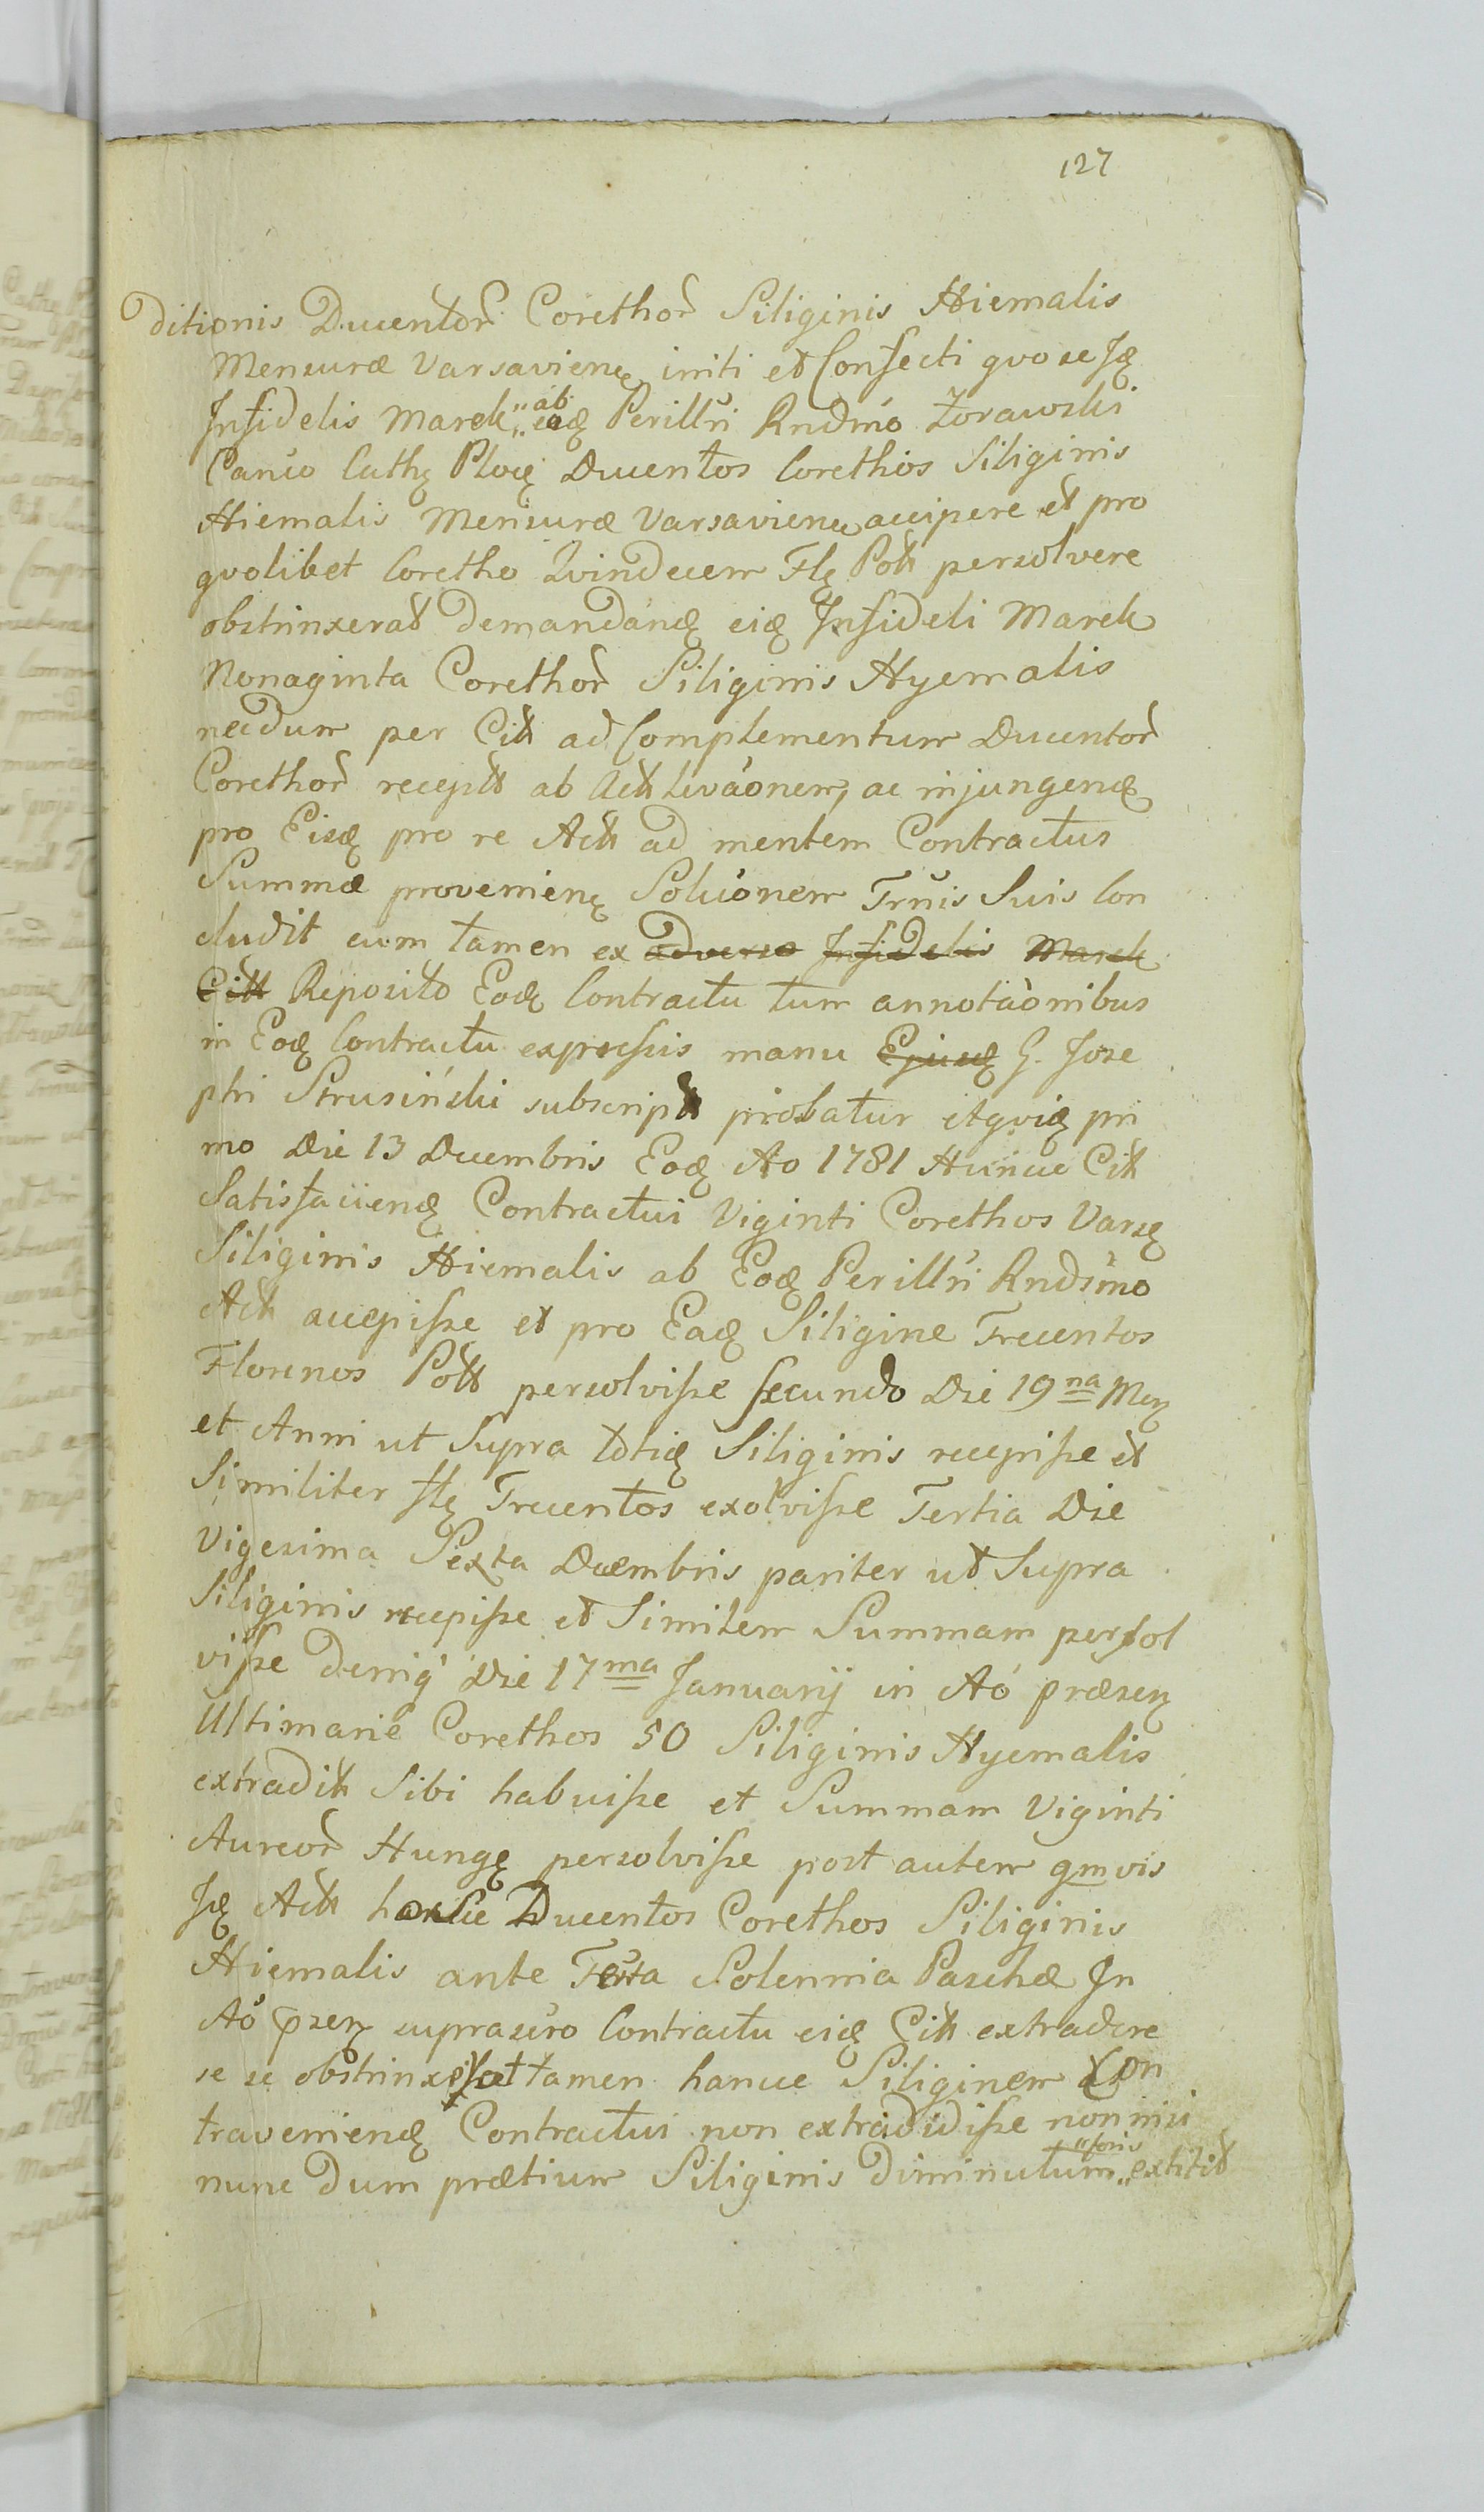 127
ditionis Ducentor Corethor Siliginis Hiemalis
Mensuræ Varsavienę initi et Confecti qvo se Ię
Infidelis Marek „ab„ eodę Perillri Rndmo Żorawski
Canco Cathę Plocę Ducentos Corethos Siliginis
Hiemalis Mensuræ Varsavienę accipere et pro
qvolibet Coretho Qvindecem Flę Pott persolvere
obstrinxerat demandandę eidę Infideli Marek
Nonaginta Corethor Siliginis Hyemalis
necdum per Citt ad Complementum Ducentor
Corethor receptt ab Actt levaonem, ac injungendę
pro Eisdę pro re Actt ad mentem Contractus
Summæ provenienę Soluonem Trnis Suis Con
cludit cum tamen ex adverso Infidelis Marek
Citt Reposito Eodę Contractu tum annotaonibus
in Eodę Contractu expressis manu Ejusdę G. Jose
phi Strusiński subscriptt probatur itqvidę pri
mo Die 13 Decembris Eodę Ao 1781 Huncce Citt
Satisfaciendę Contractui Viginti Corethos Varsę
Siliginis Hiemalis ab Eodę Perillri Rndsmo
Actt accepisse et pro Eadę Siligine Trecentos
Florenos Pott persolvisse secundo Die 19na Menę
et Anni ut Supra totidę Siliginis recepisse et
Similiter flę Trecentos exolvisse Tertia Die
Vigesima Sexta Decembris pariter ut Supra
Siliginis recepisse et Similem Summam persol
visse deniq Die 17ma Januarij in Ao præsenę
Ultimarie Corethos 50 Siliginis Hyemalis
extraditt Sibi habuisse et Summam Viginti
Aureor Hungę persolvisse post autem qmvis
Ię Actt hosce Ducentos Corethos Siliginis
Hiemalis ante Festa Solennia Paschæ In
Ao psenę suprascro Contractu eidę Citt extradere
se se obstrinxisset tamen hancce Siliginem Con
traveniendę Contractui non extradidisse non nisi
nunc dum prætium Siliginis diminutum „foris„ extitit